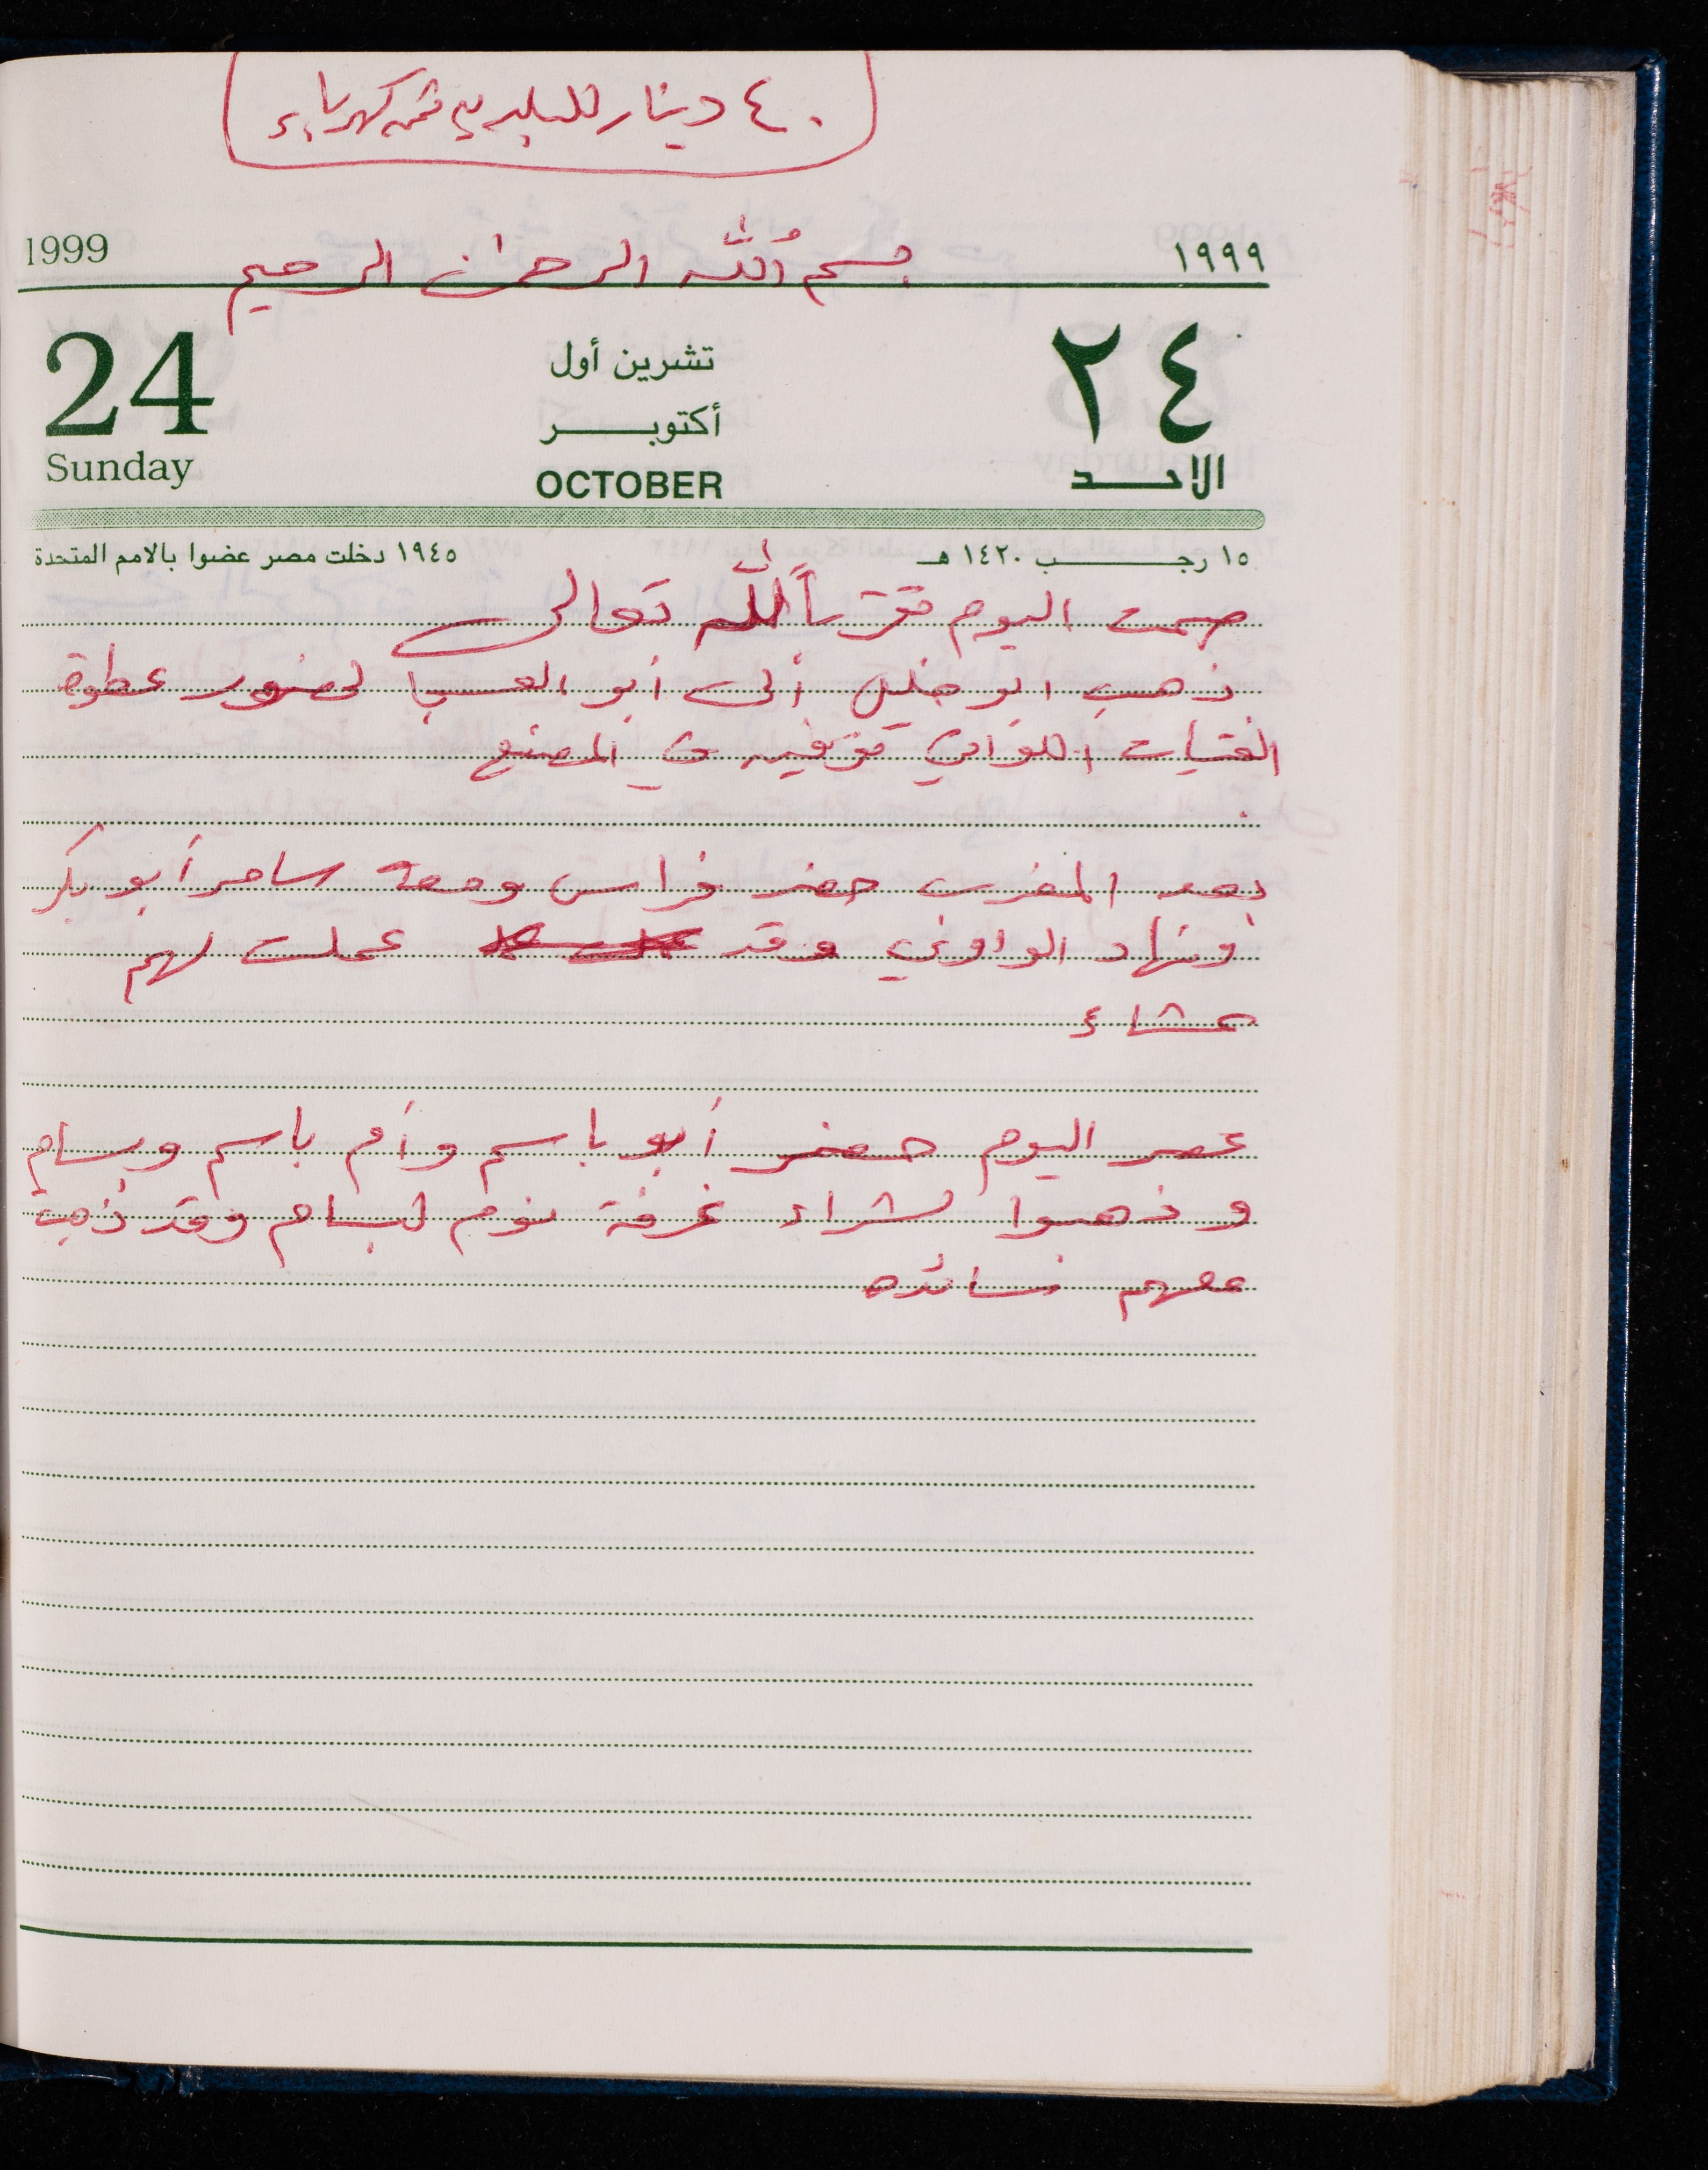 ٤٠ دينار للبلدية ثمن كهرباء
1999 بسم الله الرحمن الرحيم ١٩٩٩
24 تشرين أول ٢٤
أكتوبر
Sunday OCTOBER الاحد
١٥ رجب ١٤٢٠ هـ ١٩٤٥ دخلت مصر عضوا بالامم المتحدة
صمت اليوم تقرباً لله تعالى
ذهب ابو خليل ألى أبو العسجا لحضور عطوة
الفتيات اللواتي توفين في المصنع
بعد المغرب حضر فراس ومعه سامر أبو بكر
ونهاد الواوي وقد عملت لهم
عشاء
عصر اليوم حضر أبو باسم وأم باسم وبسام
وذهبوا لشراء غرفة نوم لبسام وقد ذهبت
معهم